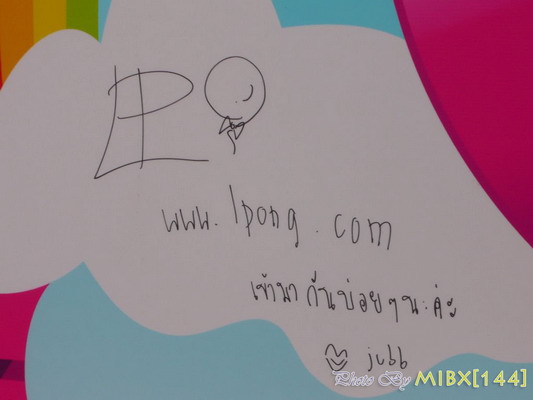 LP
www.lpong.com
เข้ามากันบ่อยๆนะค่ะ
jubb
Photo By MIBX[144]